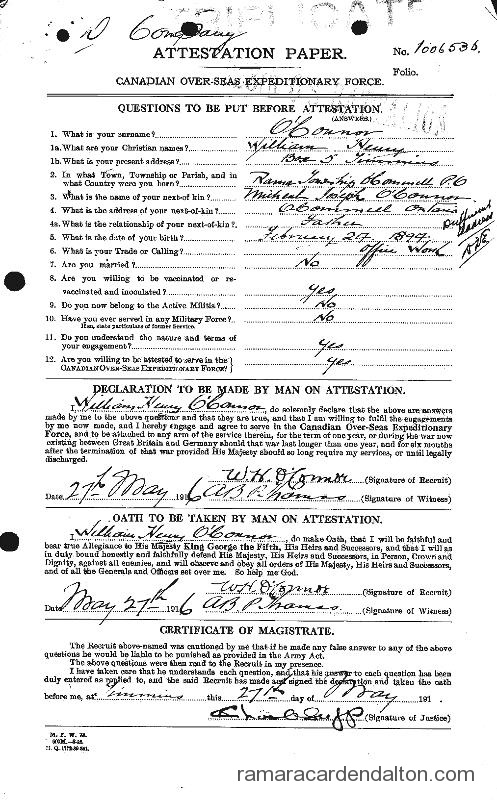 D Company
TRIPLICATE
ATTESTATION PAPER.
No. 1006536
Folio.
CANADIAN OVER-SEAS EXPEDITIONARY FORCE.
QUESTIONS TO BE PUT BEFORE ATTESTATION.
(ANSWERS.)
1. What is your surname? O'Connor
1a. What are your Christian names? William Henry
1b. What is your present address? Box 5 Timmins
2. In what Town, Township or Parish, and in
what Country were you born? Rama Township O'Connell P.O
3. What is the name of your next-of-kin? Michael Joseph O'Connor
4. What is the address of your next-of-kin? O'Connell Ontario
4a. What is the relationship of your next-of-kin? Father
5. What is the date of your birth? February 27 1897
6. What is your Trade or Calling? Office Work
7. Are you married? No
8. Are you willing to be vaccinated or re-
vaccinated and inoculated? Yes
9. Do you now belong to the Active Militia? No
10. Have you ever served in any Military Force? No
If so, state particulars of former Service.
11. Do you understand the nature and terms of
your engagement? Yes
12. Are you willing to be attested to serve in the
CANADIAN OVER-SEAS EXPEDITIONARY FORCE? Yes
DECLARATION TO BE MADE BY MAN ON ATTESTATION.
I, William Henry O'Connor, do solemnly declare that the above are answers
made by me to the above questions and that they are true, and that I am willing to fulfil the engagements
by me now made, and I hereby engage and agree to serve in the Canadian Over-Seas Expeditionary
Force, and to be attached to any arm of the service therein, for the term of one year, or during the war now
existing between Great Britain and Germany should that war last longer than one year, and for six months
after the termination of that war provided His Majesty should so long require my services, or until legally
discharged.
W.H. O'Connor (Signature of Recruit)
Date 27th May 1916 A B P Thomas (Signature of Witness)
OATH TO BE TAKEN BY MAN ON ATTESTATION.
I, William Henry O'Connor, do make Oath, that I will be faithful and
bear true Allegiance to His Majesty King George the Fifth, His Heirs and Successors, and that I will as
in duty bound honestly and faithfully defend His Majesty, His Heirs and Successors, in Person, Crown and
Dignity, against all enemies, and will observe and obey all orders of His Majesty, His Heirs and Successors,
and of all the Generals and Officers set over me. So help me God.
W H O'Connor (Signature of Recruit)
Date May 27th 1916 A B P Thomas (Signature of Witness)
CERTIFICATE OF MAGISTRATE.
The Recruit above-named was cautioned by me that if he made any false answer to any of the above
questions he would be liable to be punished as provided in the Army Act.
The above questions were then read to the Recruit in my presence.
I have taken care that he understands each question, and that his answer to each question has been
duly entered as replied to, and the said Recruit has made and signed the declaration and taken the oath
before me, at Timmins this 27th day of May 191 .
(Signature of Justice)
M. F. W. 23.
ramaracardendalton.com